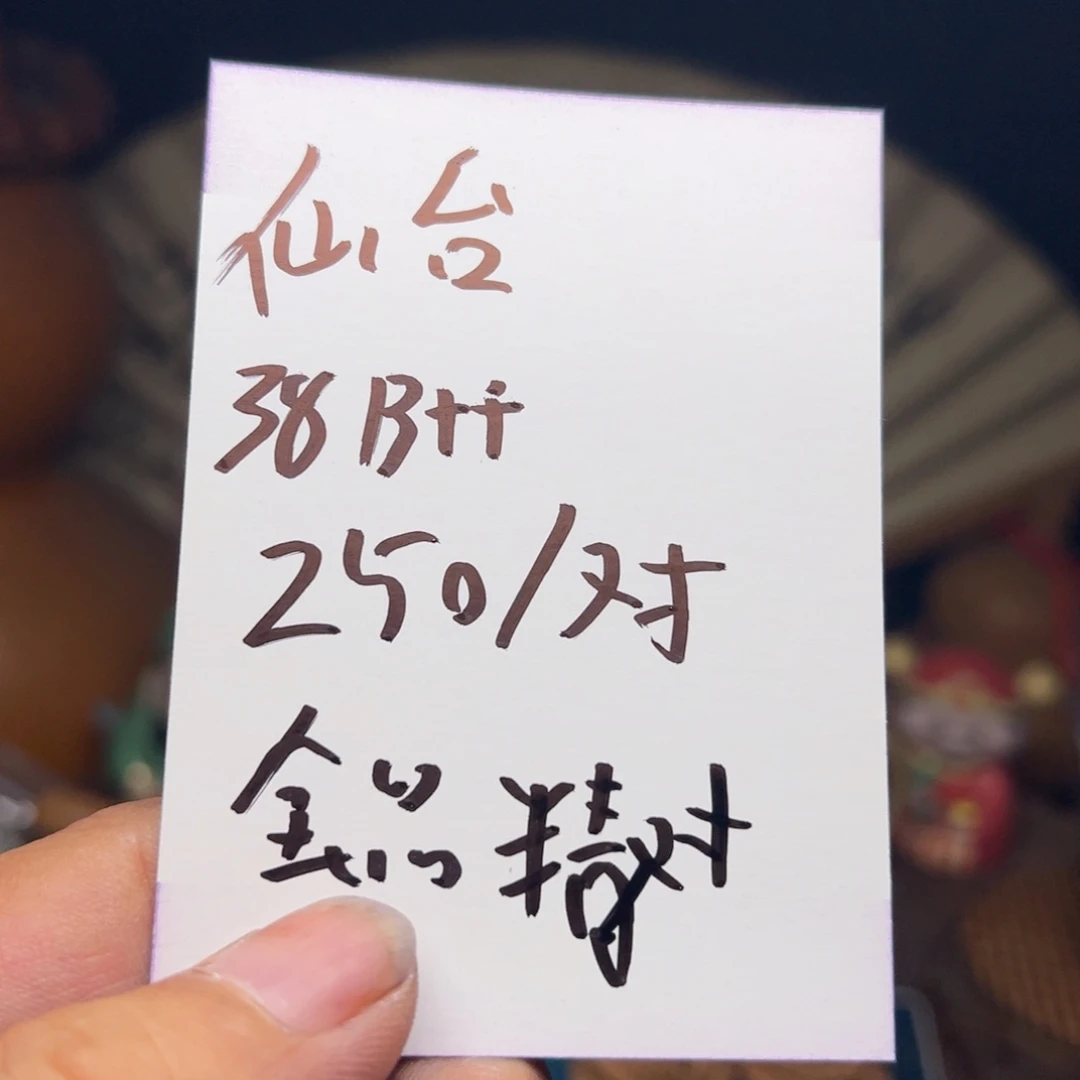 仙台
38B++
250/对
全品精对